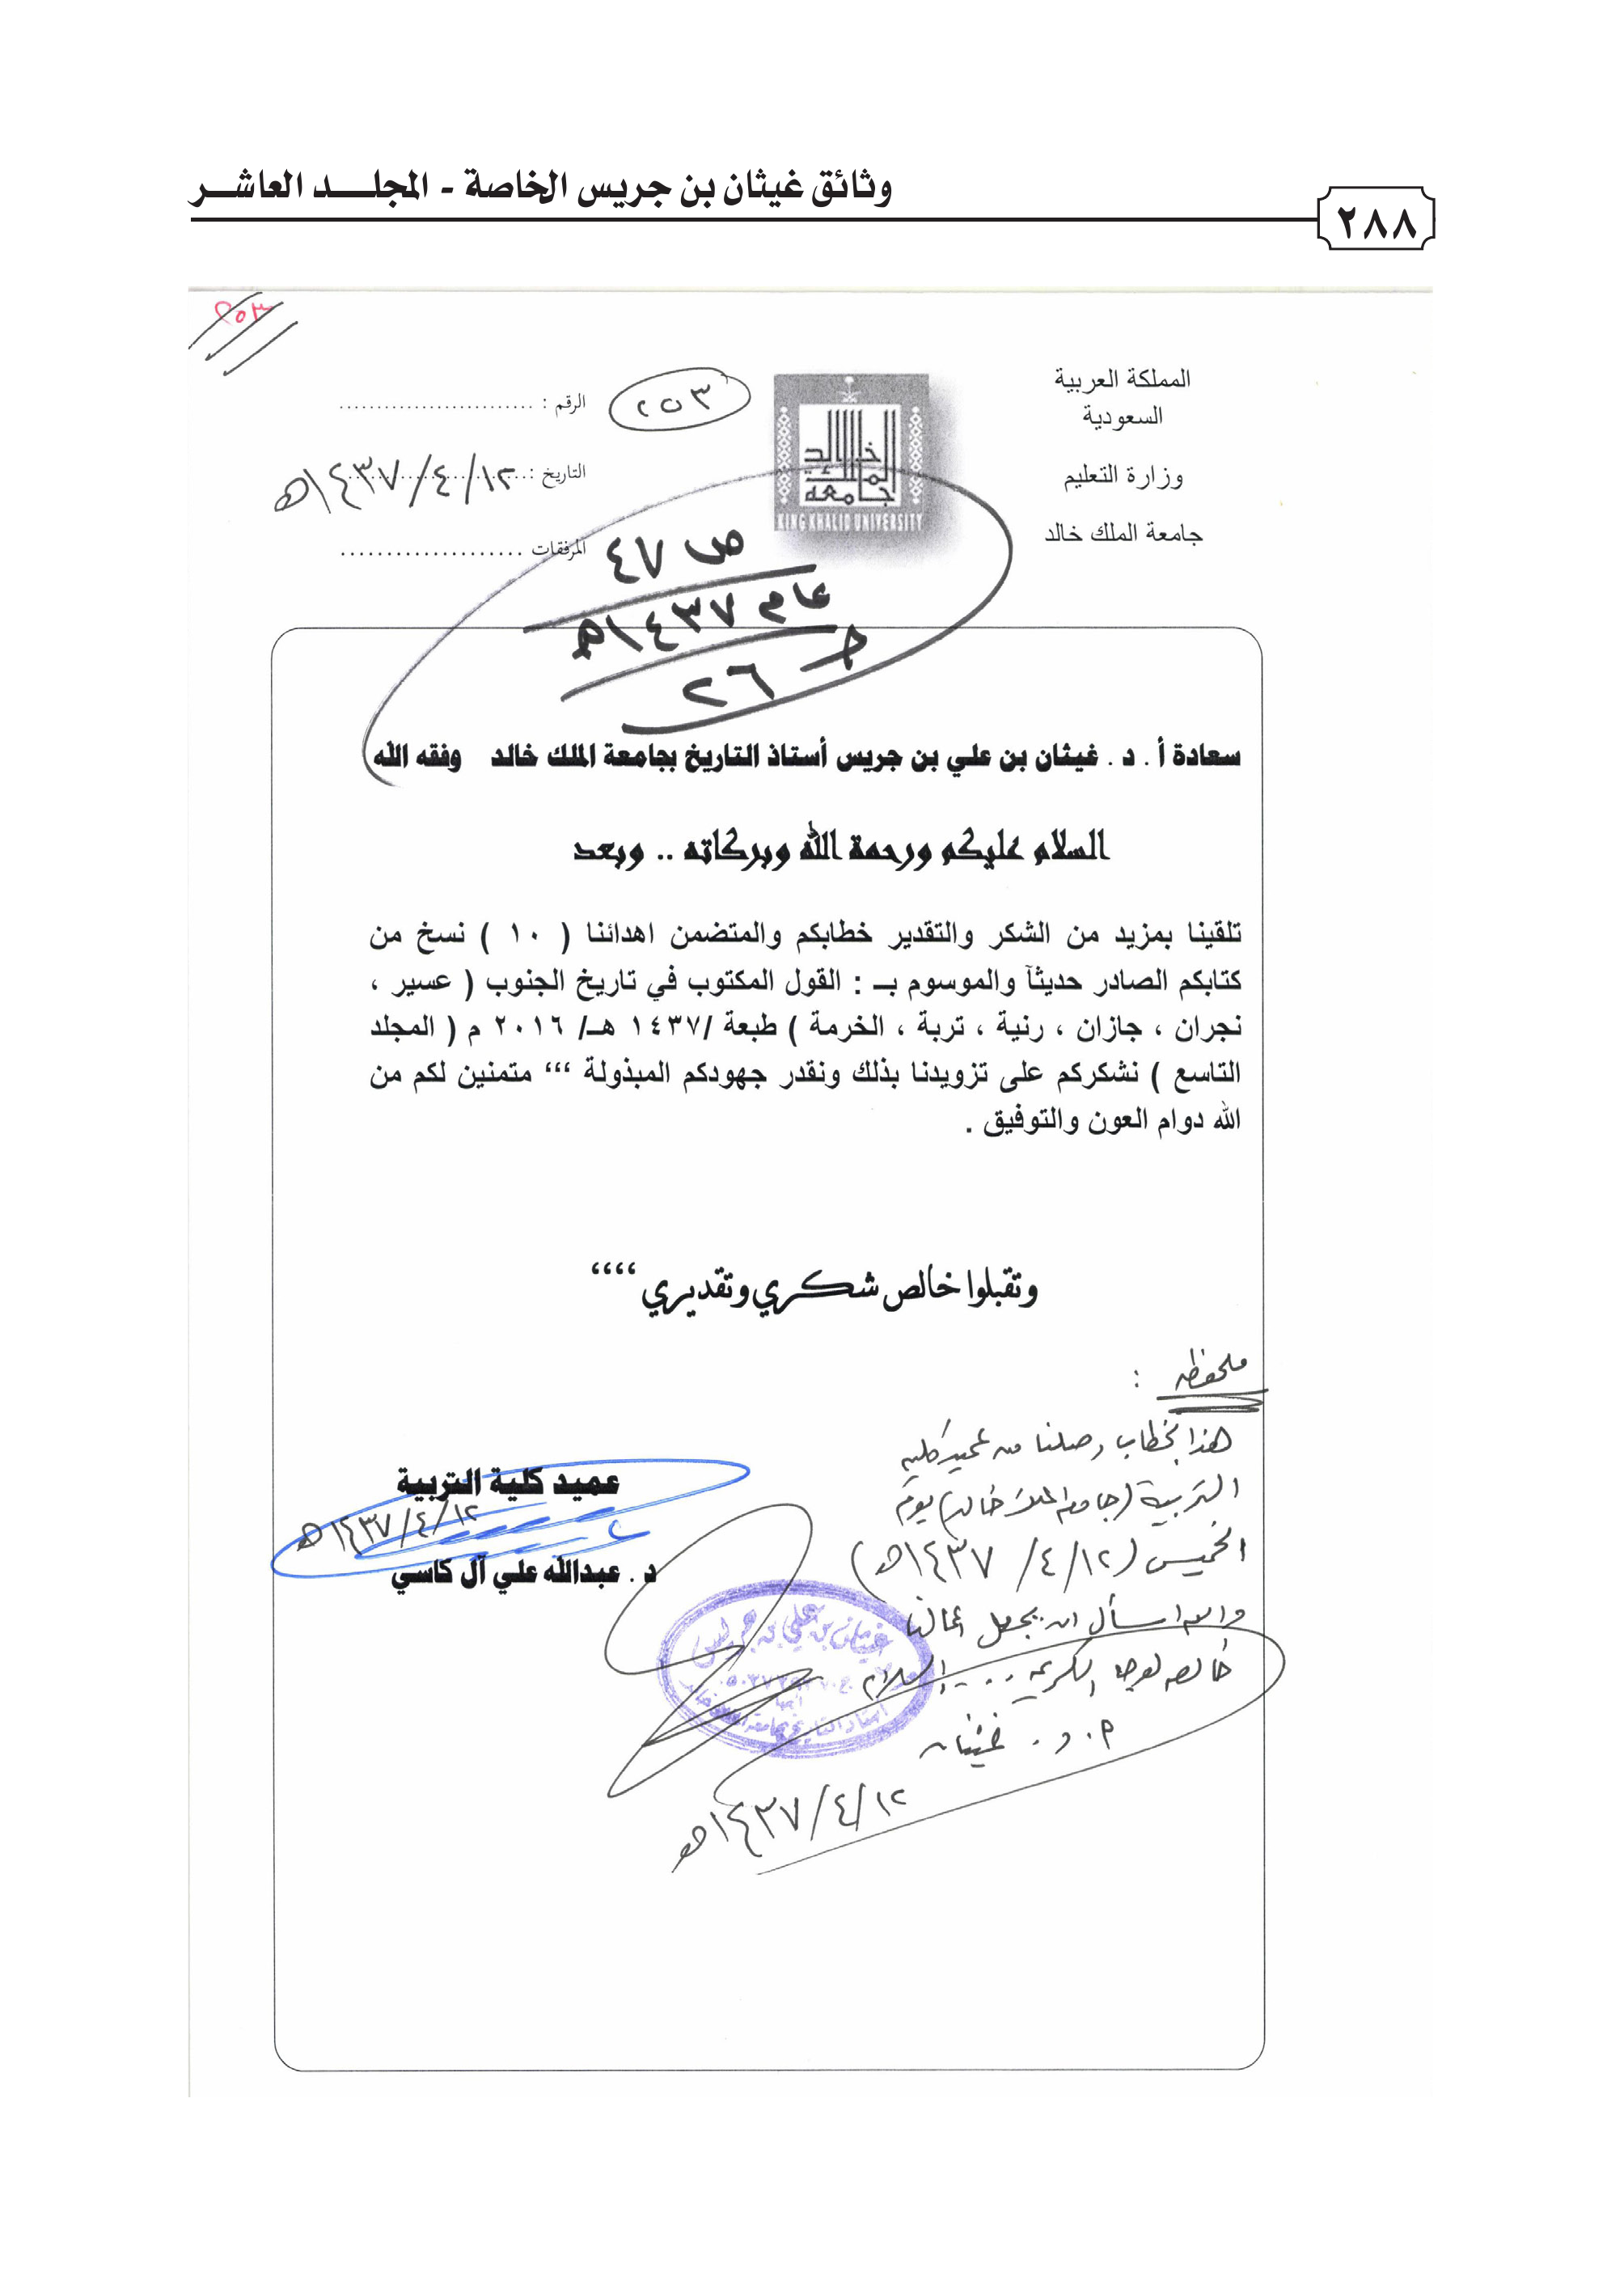 وثائق غيثان بن جريس الخاصة - المجلـــد العاشـــر
٢٨٨
٢٥٣
المملكة العربية
السعودية
وزارة التعليم
جامعة الملك خالد
جامعة الملك خالد
KING KHALID UNIVERSITY
٢٥٣
الرقم : ..........................
التاريخ : ١٤٣٧/٤/١٢هـ
المرفقات ....................
ص ٤٧
عام ١٤٣٧هـ
ج ٢٦
سعادة أ . د . غيثان بن علي بن جريس أستاذ التاريخ بجامعة الملك خالد وفقه الله
السلام عليكم ورحمة الله وبركاته .. وبعد
تلقينا بمزيد من الشكر والتقدير خطابكم والمتضمن اهدائنا ( ١٠ ) نسخ من
كتابكم الصادر حديثآ والموسوم بــ : القول المكتوب في تاريخ الجنوب ( عسير ،
نجران ، جازان ، رنية ، تربة ، الخرمة ) طبعة /١٤٣٧ هـ/ ٢٠١٦ م ( المجلد
التاسع ) نشكركم على تزويدنا بذلك ونقدر جهودكم المبذولة ،،، متمنين لكم من
الله دوام العون والتوفيق .
وتقبلوا خالص شكري وتقديري ،،،،
عميد كلية التربية
١٤٣٧/٤/١٢هـ
د . عبدالله علي آل كاسي
ملحوظه :
هذا الخطاب وصلنا من عميد كلية
التربية (جامعة الملك خالد) يوم
الخميس (١٤٣٧/٤/١٢هـ)
والله اسأل ان يجعل اعمالنا
خالصه لوجهه الكريم ... السلام
أ. د. غيثان
١٤٣٧/٤/١٢هـ
غيثان بن علي بن جريس
أبها
أستاذ التاريخ بجامعة الملك خالد